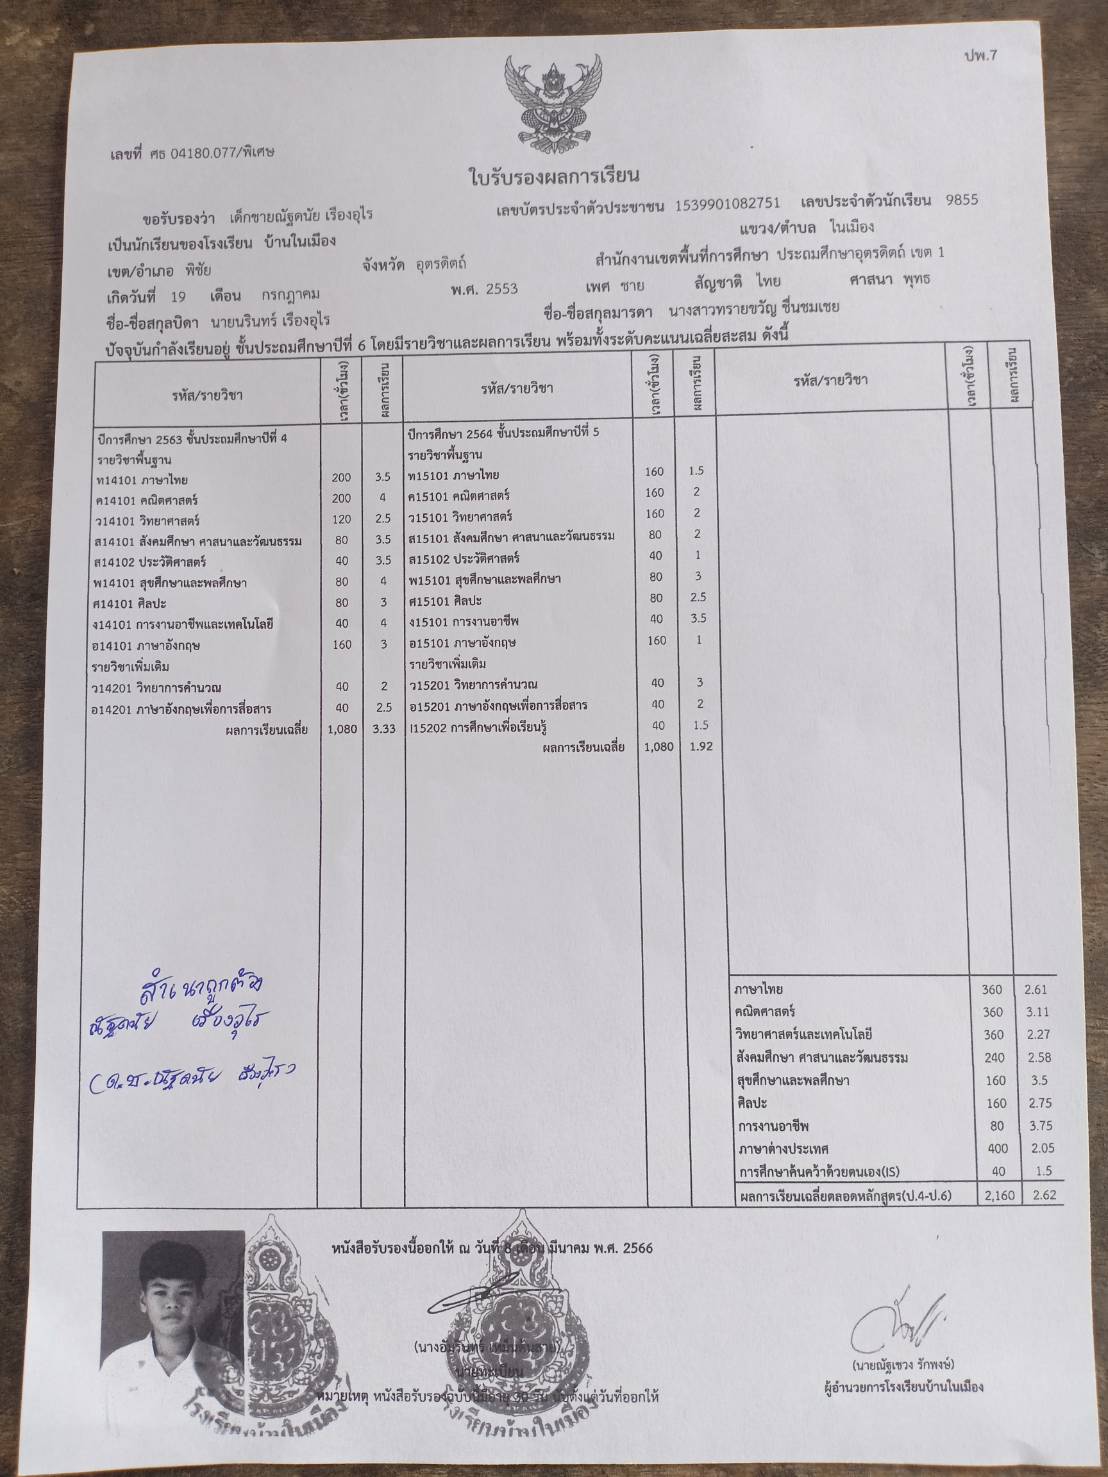 ปพ.7
เลขที่ ศธ 04180.077/พิเศษ
ใบรับรองผลการเรียน
ขอรับรองว่า เด็กชายณัฐดนัย เรืองอุไร เลขบัตรประจำตัวประชาชน 1539901082751 เลขประจำตัวนักเรียน 9855
เป็นนักเรียนของโรงเรียน บ้านในเมือง แขวง/ตำบล ในเมือง
เขต/อำเภอ พิชัย จังหวัด อุตรดิตถ์ สำนักงานเขตพื้นที่การศึกษา ประถมศึกษาอุตรดิตถ์ เขต 1
เกิดวันที่ 19 เดือน กรกฎาคม พ.ศ. 2553 เพศ ชาย สัญชาติ ไทย ศาสนา พุทธ
ชื่อ-ชื่อสกุลบิดา นายนรินทร์ เรืองอุไร ชื่อ-ชื่อสกุลมารดา นางสาวทรายขวัญ ชื่นชมเชย
ปัจจุบันกำลังเรียนอยู่ ชั้นประถมศึกษาปีที่ 6 โดยมีรายวิชาและผลการเรียน พร้อมทั้งระดับคะแนนเฉลี่ยสะสม ดังนี้
รหัส/รายวิชา เวลา(ชั่วโมง) ผลการเรียน รหัส/รายวิชา เวลา(ชั่วโมง) ผลการเรียน รหัส/รายวิชา เวลา(ชั่วโมง) ผลการเรียน
ปีการศึกษา 2563 ชั้นประถมศึกษาปีที่ 4 ปีการศึกษา 2564 ชั้นประถมศึกษาปีที่ 5
รายวิชาพื้นฐาน รายวิชาพื้นฐาน
ท14101 ภาษาไทย 200 3.5 ท15101 ภาษาไทย 160 1.5
ค14101 คณิตศาสตร์ 200 4 ค15101 คณิตศาสตร์ 160 2
ว14101 วิทยาศาสตร์ 120 2.5 ว15101 วิทยาศาสตร์ 160 2
ส14101 สังคมศึกษา ศาสนาและวัฒนธรรม 80 3.5 ส15101 สังคมศึกษา ศาสนาและวัฒนธรรม 80 2
ส14102 ประวัติศาสตร์ 40 3.5 ส15102 ประวัติศาสตร์ 40 1
พ14101 สุขศึกษาและพลศึกษา 80 4 พ15101 สุขศึกษาและพลศึกษา 80 3
ศ14101 ศิลปะ 80 3 ศ15101 ศิลปะ 80 2.5
ง14101 การงานอาชีพและเทคโนโลยี 40 4 ง15101 การงานอาชีพ 40 3.5
อ14101 ภาษาอังกฤษ 160 3 อ15101 ภาษาอังกฤษ 160 1
รายวิชาเพิ่มเติม รายวิชาเพิ่มเติม
ว14201 วิทยาการคำนวณ 40 2 ว15201 วิทยาการคำนวณ 40 3
อ14201 ภาษาอังกฤษเพื่อการสื่อสาร 40 2.5 อ15201 ภาษาอังกฤษเพื่อการสื่อสาร 40 2
ผลการเรียนเฉลี่ย 1,080 3.33 I15202 การศึกษาเพื่อเรียนรู้ 40 1.5
ผลการเรียนเฉลี่ย 1,080 1.92
สำเนาถูกต้อง
ณัฐดนัย เรืองอุไร
(ด.ช.ณัฐดนัย เรืองอุไร)
ภาษาไทย 360 2.61
คณิตศาสตร์ 360 3.11
วิทยาศาสตร์และเทคโนโลยี 360 2.27
สังคมศึกษา ศาสนาและวัฒนธรรม 240 2.58
สุขศึกษาและพลศึกษา 160 3.5
ศิลปะ 160 2.75
การงานอาชีพ 80 3.75
ภาษาต่างประเทศ 400 2.05
การศึกษาค้นคว้าด้วยตนเอง(IS) 40 1.5
ผลการเรียนเฉลี่ยตลอดหลักสูตร(ป.4-ป.6) 2,160 2.62
หนังสือรับรองนี้ออกให้ ณ วันที่ 8 เดือน มีนาคม พ.ศ. 2566
นายทะเบียน
(นายณัฐเชวง รักพงษ์)
ผู้อำนวยการโรงเรียนบ้านในเมือง
หมายเหตุ หนังสือรับรองฉบับนี้มีอายุ 90 วัน นับตั้งแต่วันที่ออกให้
โรงเรียนบ้านในเมือง โรงเรียนบ้านในเมือง